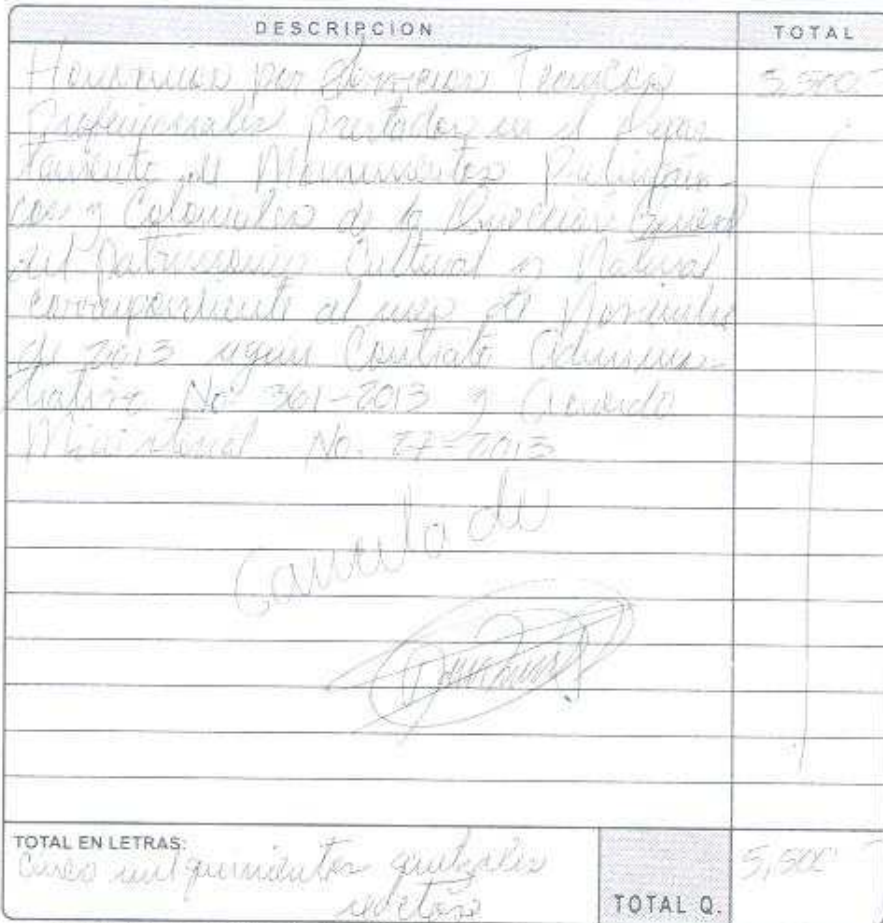 DESCRIPCION TOTAL
Honorarios por Servicios Tecnicos 5,500
Profesionales prestados en el Depar
tamento de Monumentos Prehispáni-
cos y Coloniales de la Dirección General
del Patrimonio Cultural y Natural
correspondiente al mes de Noviembre
de 2013 segun Contrato Adminis-
trativo No 361-2013 y Acuerdo
Ministerial No. 27-2013
Cancelado
TOTAL EN LETRAS:
Cinco mil quinientos quetzales 5,500
exactos
TOTAL Q.